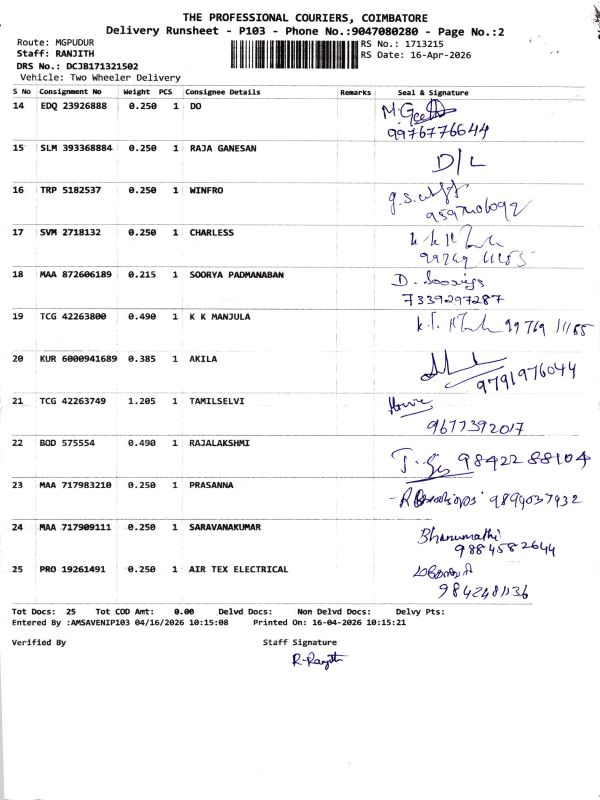 THE PROFESSIONAL COURIERS, COIMBATORE
Delivery Runsheet - P103 - Phone No.:9047080280 - Page No.:2
Route: MGPUDUR
RS No.: 1713215
Staff: RANJITH
RS Date: 16-Apr-2026
DRS No.: DCJB171321502
Vehicle: Two Wheeler Delivery
S No Consignment No Weight PCS Consignee Details Remarks Seal & Signature
14 EDQ 23926888 0.250 1 DO
9976776644
15 SLM 393368884 0.250 1 RAJA GANESAN D/L
16 TRP 5182537 0.250 1 WINFRO
17 SVM 2718132 0.250 1 CHARLESS
18 MAA 872606189 0.215 1 SOORYA PADMANABAN
7339297287
19 TCG 42263800 0.490 1 K K MANJULA
20 KUR 6000941689 0.385 1 AKILA
9791976044
21 TCG 42263749 1.205 1 TAMILSELVI
9677392017
22 BOD 575554 0.490 1 RAJALAKSHMI 9842288104
23 MAA 717983210 0.250 1 PRASANNA
24 MAA 717909111 0.250 1 SARAVANAKUMAR Bhanumathi
9884582644
25 PRO 19261491 0.250 1 AIR TEX ELECTRICAL
Tot Docs: 25 Tot COD Amt: 0.00 Delvd Docs: Non Delvd Docs: Delvy Pts:
Entered By :AMSAVENIP103 04/16/2026 10:15:08 Printed On: 16-04-2026 10:15:21
Verified By Staff Signature